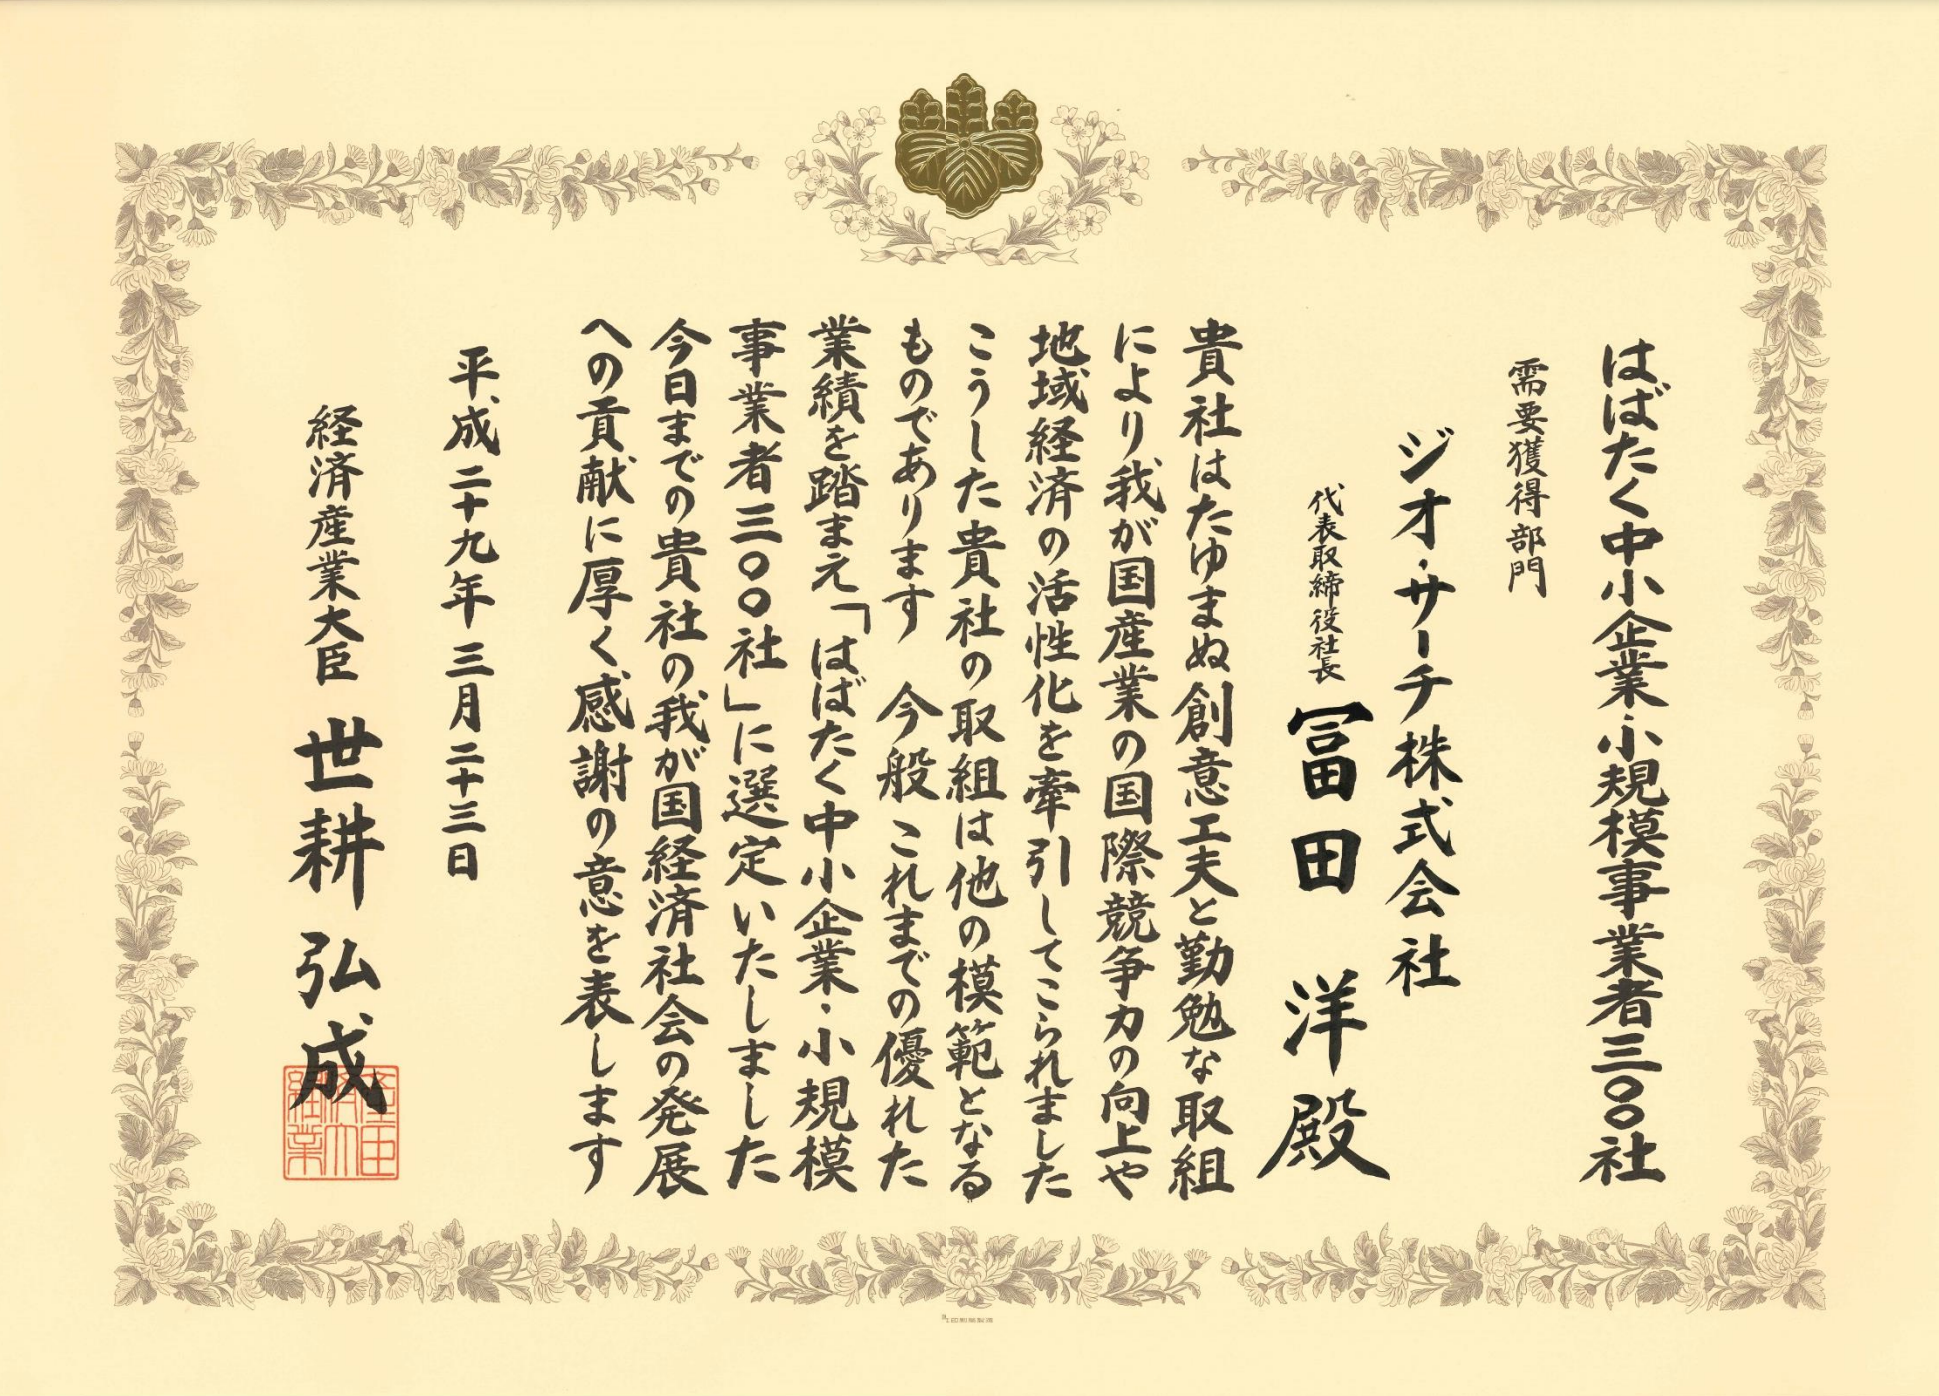 はばたく中小企業・小規模事業者三〇〇社
需要獲得部門
ジオ・サーチ株式会社
代表取締役社長 冨田 洋 殿
貴社はたゆまぬ創意工夫と勤勉な取組
により我が国産業の国際競争力の向上や
地域経済の活性化を牽引してこられました
こうした貴社の取組は他の模範となる
ものであります 今般これまでの優れた
業績を踏まえ「はばたく中小企業・小規模
事業者三〇〇社」に選定いたしました
今日までの貴社の我が国経済社会の発展
への貢献に厚く感謝の意を表します
平成二十九年三月二十三日
経済産業大臣 世耕弘成